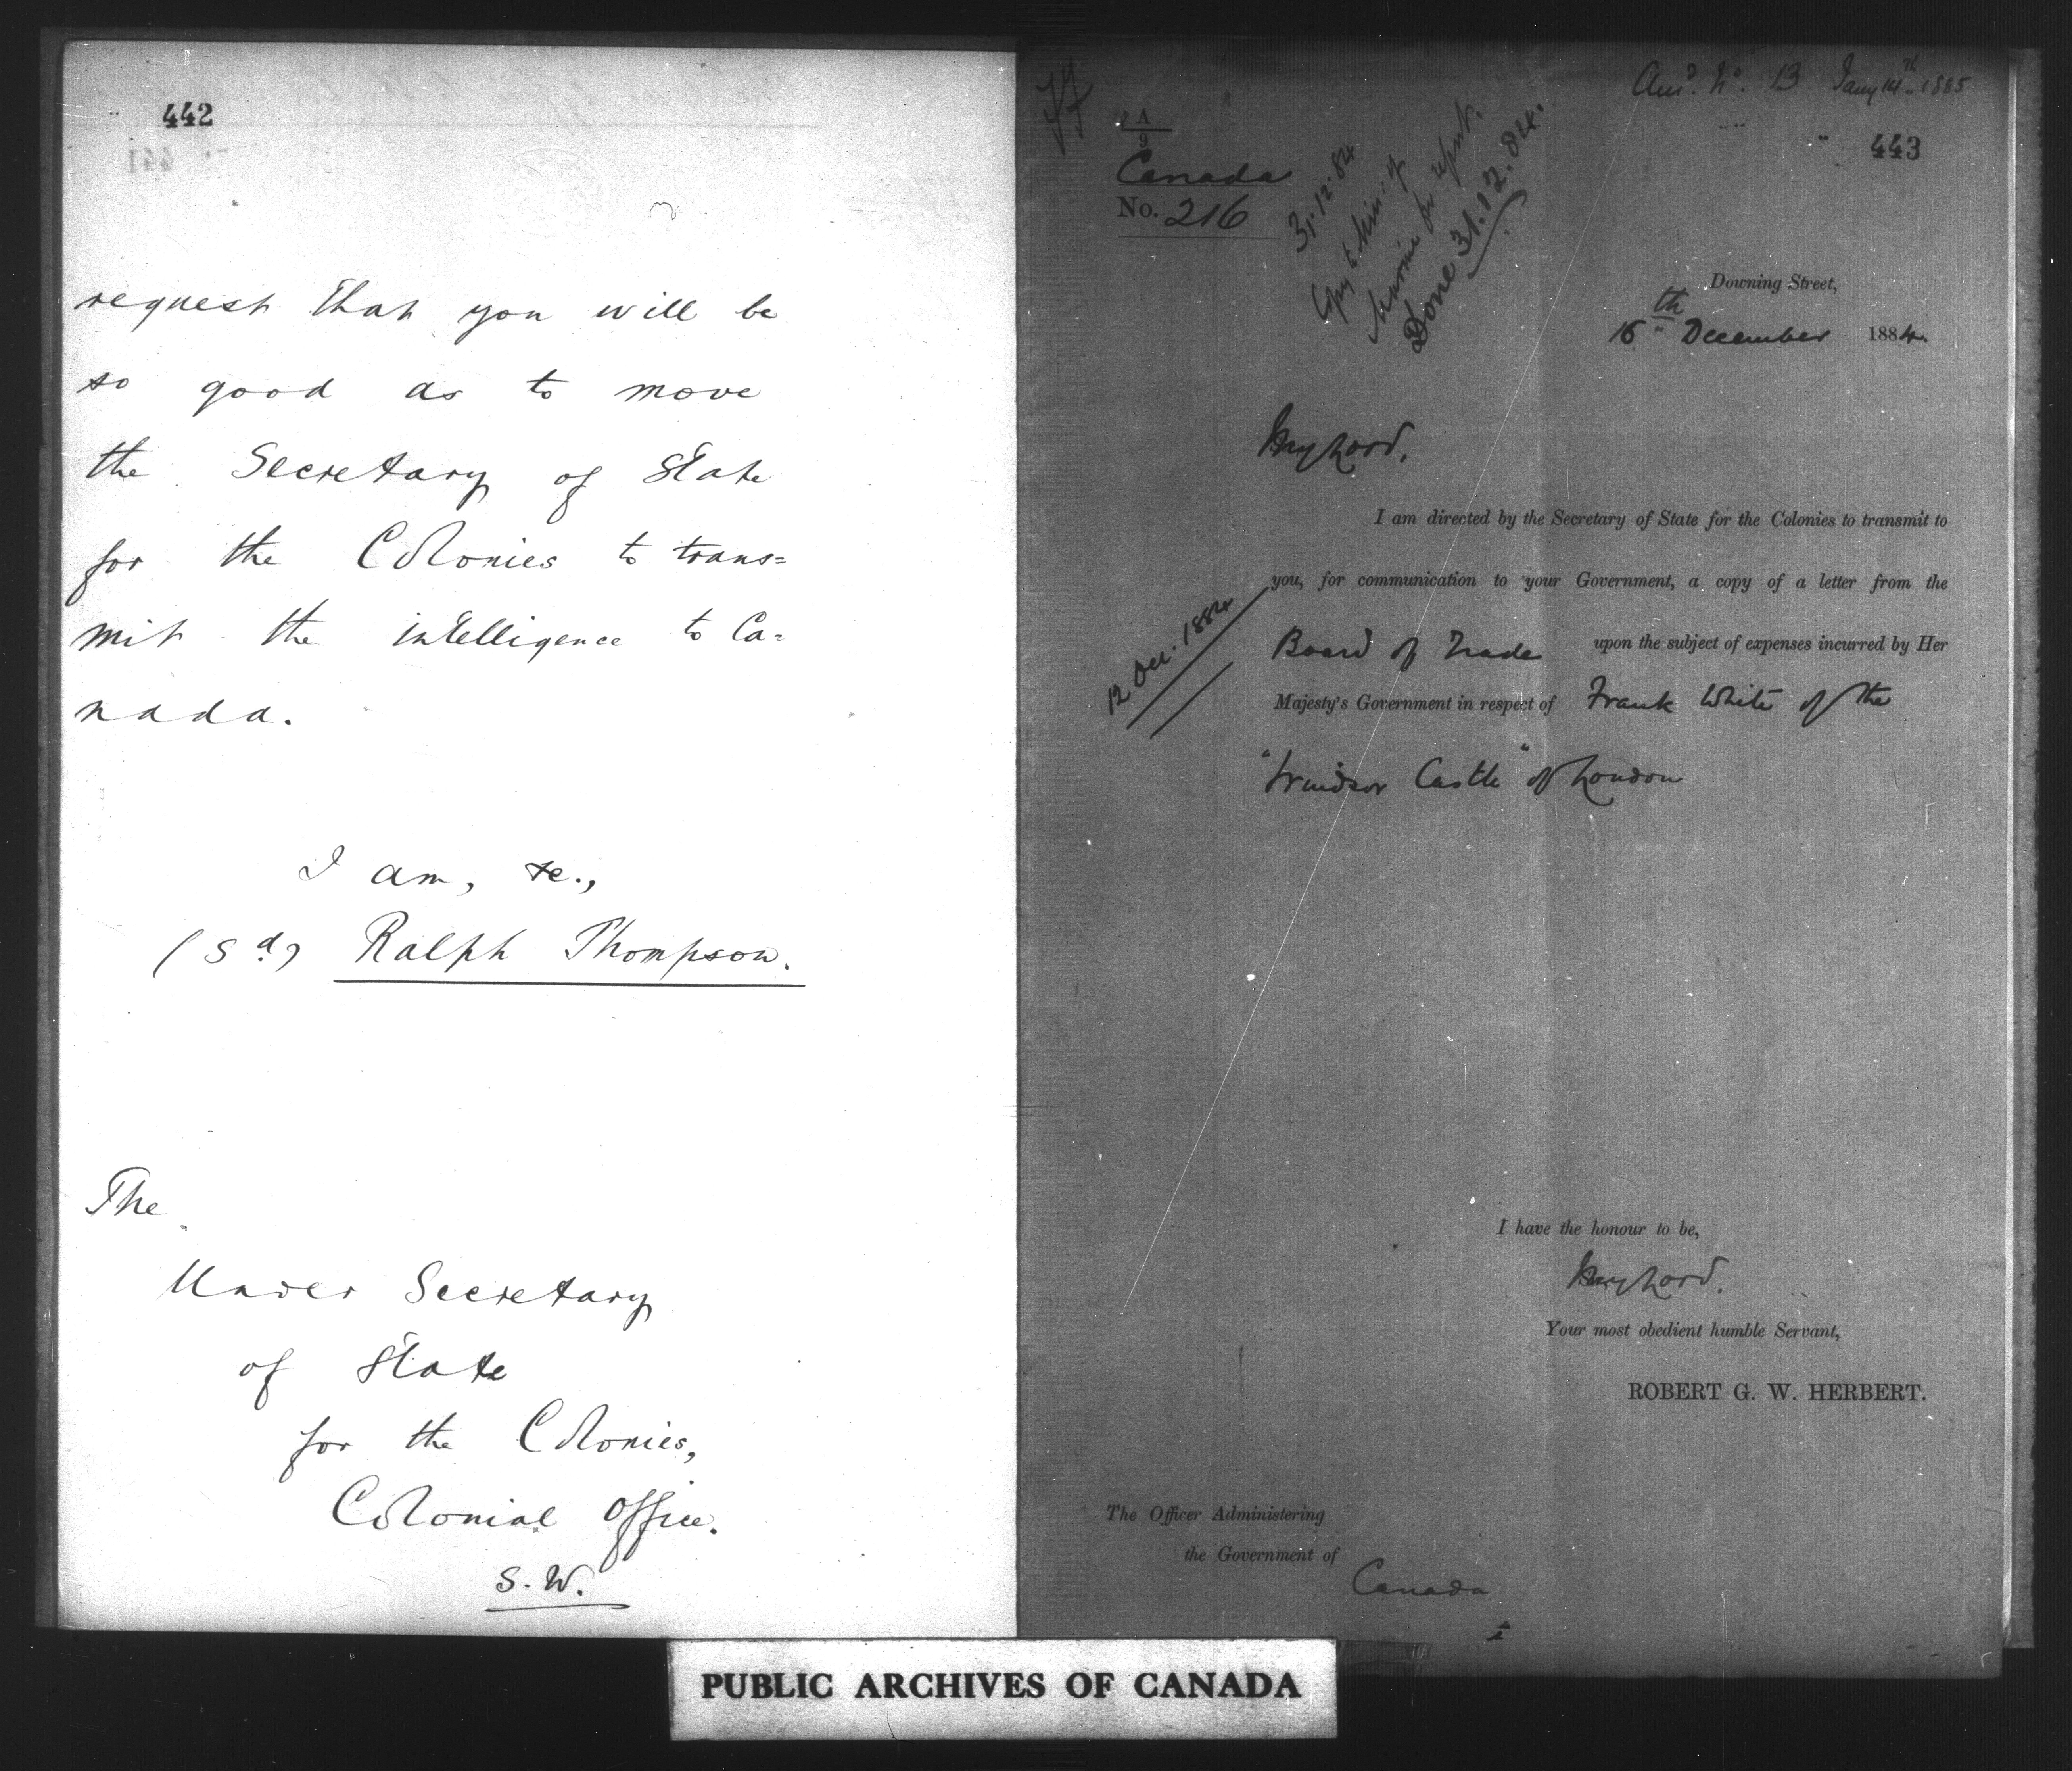 442
request that you will be
so good as to move
the Secretary of State
for the Colonies to trans=
mit the intelligence to Ca=
nada.
I am, &c.,
(Sd) Ralph Thompson.
The
Under Secretary
of State
for the Colonies,
Colonial Office.
S. W.
Ansd. No. 13 Jany 14th 1885
443
A
9
Canada
No. 216
31.12.84
Copy to Min: of
Marine for report.
Done 31.12.84.
Downing Street,
16th December 1884.
My Lord,
I am directed by the Secretary of State for the Colonies to transmit to
you, for communication to your Government, a copy of a letter from the
12 Dec. 1884
Board of Trade upon the subject of expenses incurred by Her
Majesty's Government in respect of Frank White of the
"Windsor Castle" of London
I have the honour to be,
My Lord,
Your most obedient humble Servant,
ROBERT G. W. HERBERT.
The Officer Administering
the Government of
Canada
PUBLIC ARCHIVES OF CANADA